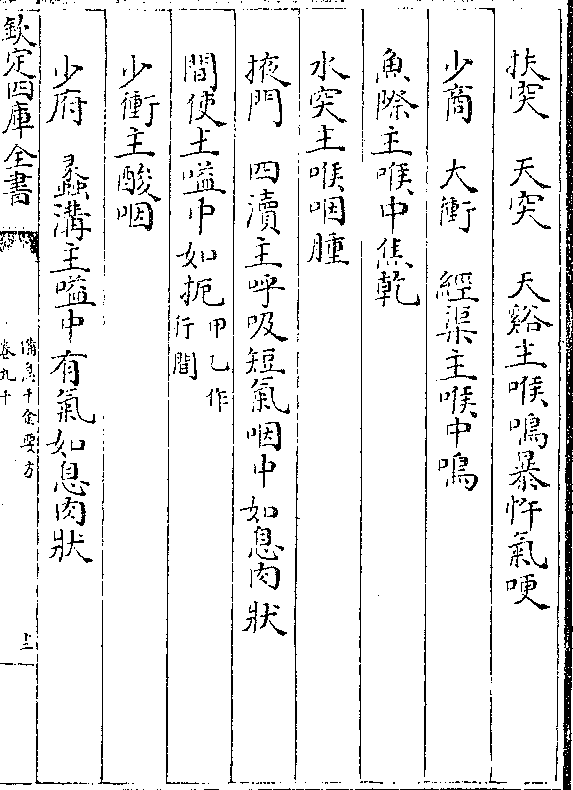 扶突　天突　天谿主喉鳴暴忤氣哽
少商　大衝　經渠主喉中鳴
魚際主喉中焦乾
水突主喉咽腫
掖門　四瀆主呼吸短氣咽中如息肉狀
間使主嗌中如扼甲乙作行間
少衝主酸咽
少府　蠡溝主嗌中有氣如息肉狀
欽定四庫全書
備急千金要方
卷九十